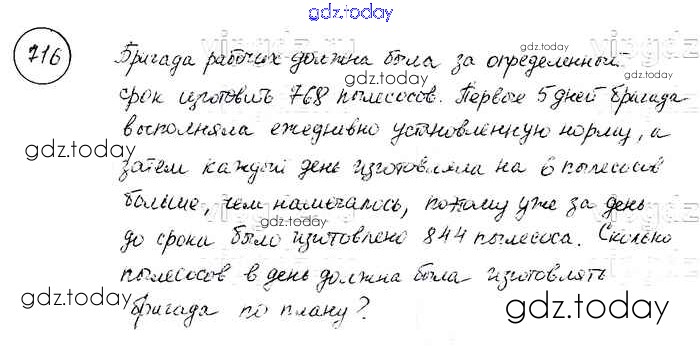 gdz.today
716
Бригада рабочих должна была за определенный
срок изготовить 768 пылесосов. Первые 5 дней бригада
выполняла ежедневно установленную норму, а
затем каждый день изготовляла на 6 пылесосов
больше, чем намечалось, потому уже за день
до срока было изготовлено 844 пылесоса. Сколько
пылесосов в день должна была изготовлять
бригада по плану?
gdz.today
gdz.today
gdz.today
gdz.today
gdz.today
gdz.today
gdz.today
gdz.today